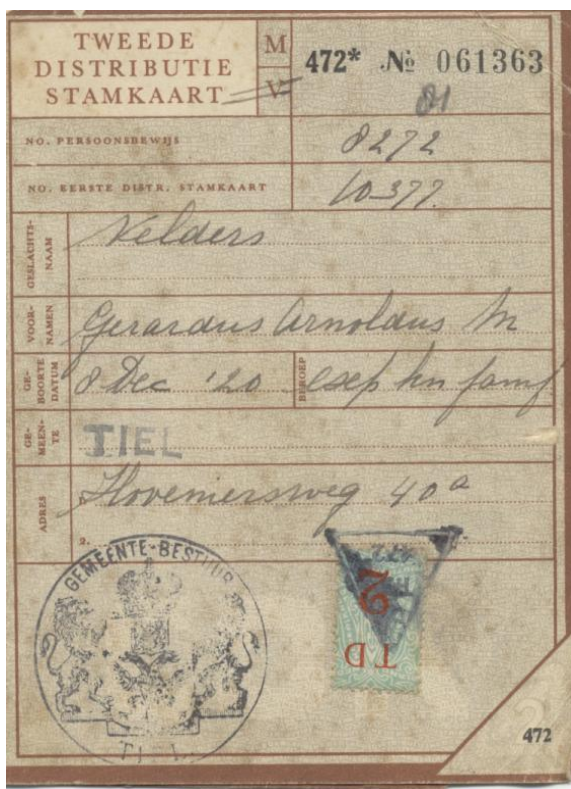 TWEEDE
DISTRIBUTIE
STAMKAART
M
V
472* № 061363
81
NO. PERSOONSBEWIJS 8272
NO. EERSTE DISTR. STAMKAART 10377.
GESLACHTS-
NAAM
Velders
VOOR-
NAMEN
Gerardus Arnoldus M
GE-
BOORTE
DATUM
8 Dec '20
BEROEP
GE-
MEEN-
TE
TIEL
ADRES
40a
2.
GEMEENTE-BESTUUR
TD
2
472